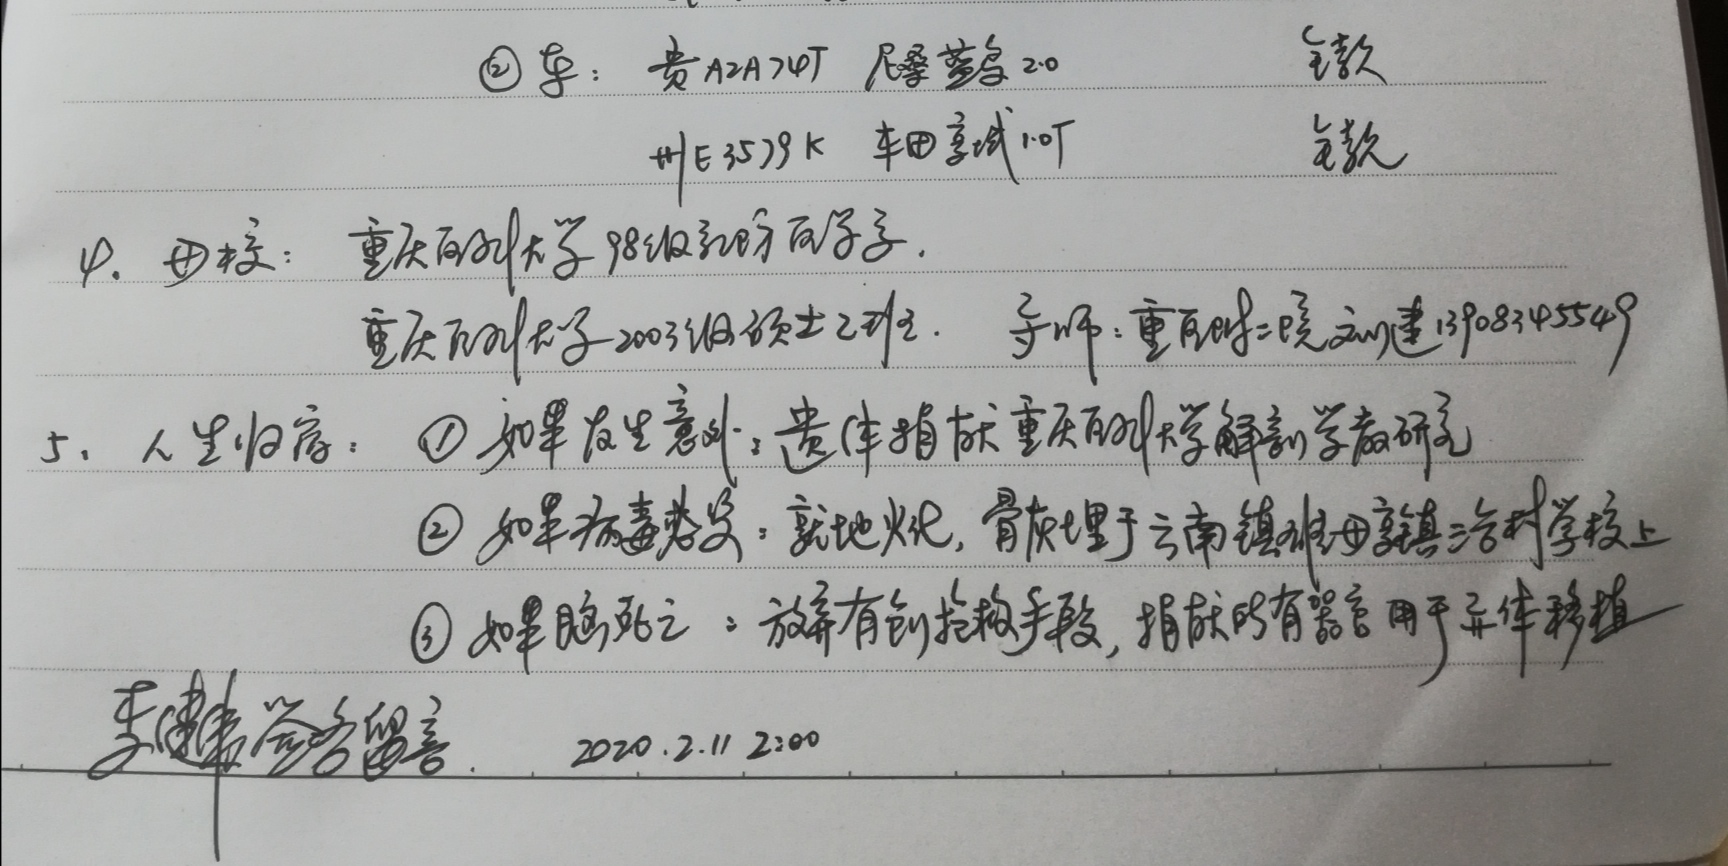 ② 车：贵A2A74T 尼桑蓝鸟2.0 全款
川E3579K 丰田享域1.0T 全款
4. 母校：重庆医科大学98级预防医学系.
重庆医科大学2003级硕士乙班. 导师：重医附二院刘建13908345549
5. 人生归宿：① 如果发生意外：遗体捐献重庆医科大学解剖学教研室
② 如果病毒感染：就地火化, 骨灰埋于云南镇雄母享镇 村学校上
③ 如果脑死亡：放弃有创抢救手段, 捐献所有器官用于异体移植
签名留言. 2020.2.11 2:00